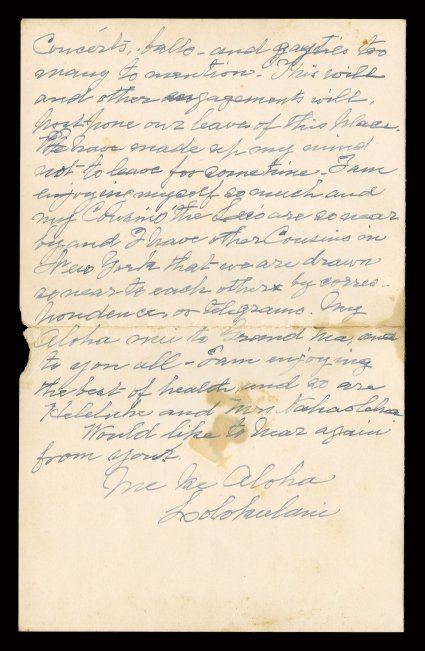 Concerts, balls - and gayties too
many to mention. This will
and other engagements will,
post-pone our leave of this place.
I have made up my mind
not to leave for some time. I am
enjoying myself so much and
my Cousins the Lees are so near
by and I have other Cousins in
New York that we are drawn
so near to each other by corres-
pondence, or telegrams. My
Aloha nui to Grand Ma, and
to you all - I am enjoying
the best of health, and so are
Heleluhe and Mrs. Nahaolelua
Would like to hear again
from you.
Me ke Aloha